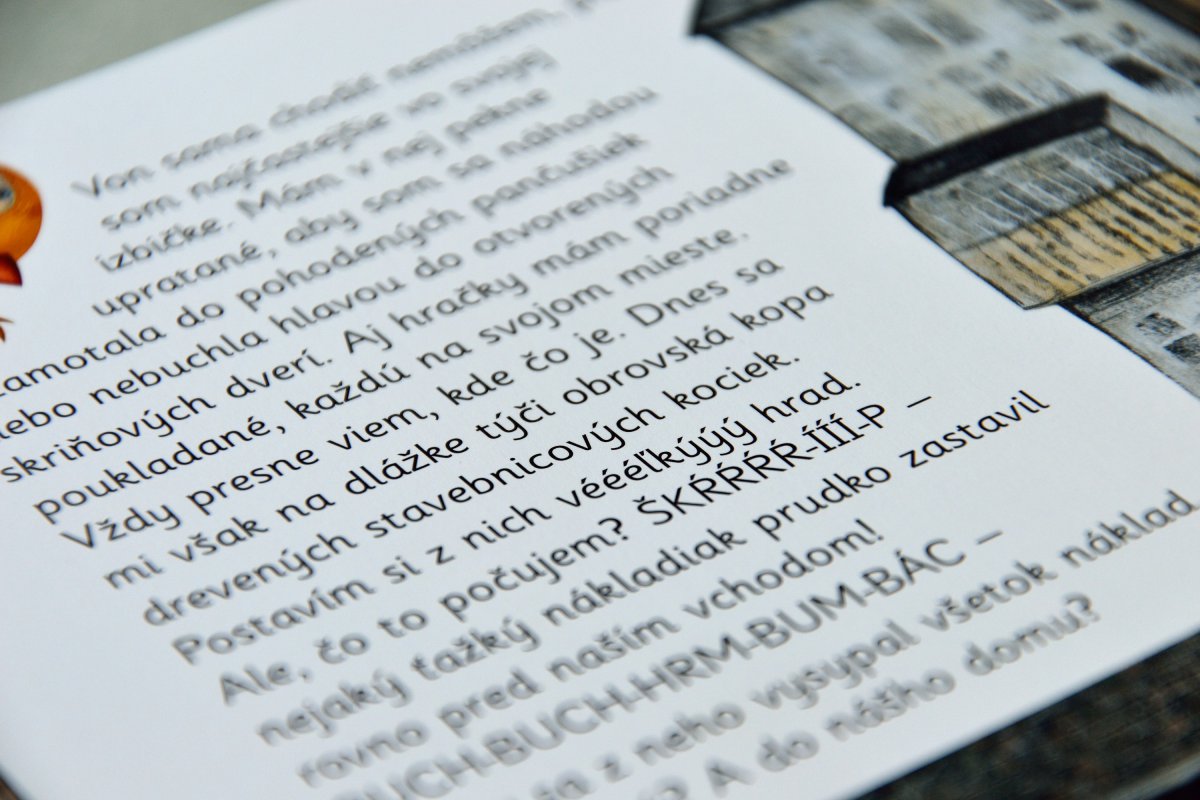 Von sama chodiť nemôžem,
som najčastejšie vo svojej
izbičke. Mám v nej pekne
upratané, aby som sa náhodou
zamotala do pohodených pančušiek
lebo nebuchla hlavou do otvorených
skriňových dverí. Aj hračky mám poriadne
poukladané, každú na svojom mieste.
Vždy presne viem, kde čo je. Dnes sa
mi však na dlážke týči obrovská kopa
drevených stavebnicových kociek.
Postavím si z nich vééélkýýý hrad.
Ale, čo to počujem? ŠKŔŔŔŔ-ÍÍÍ-P –
nejaký ťažký nákladiak prudko zastavil
rovno pred naším vchodom!
BUCH-BUCH-HRM-BUM-BÁC –
sa z neho vysypal všetok náklad
A do nášho domu?